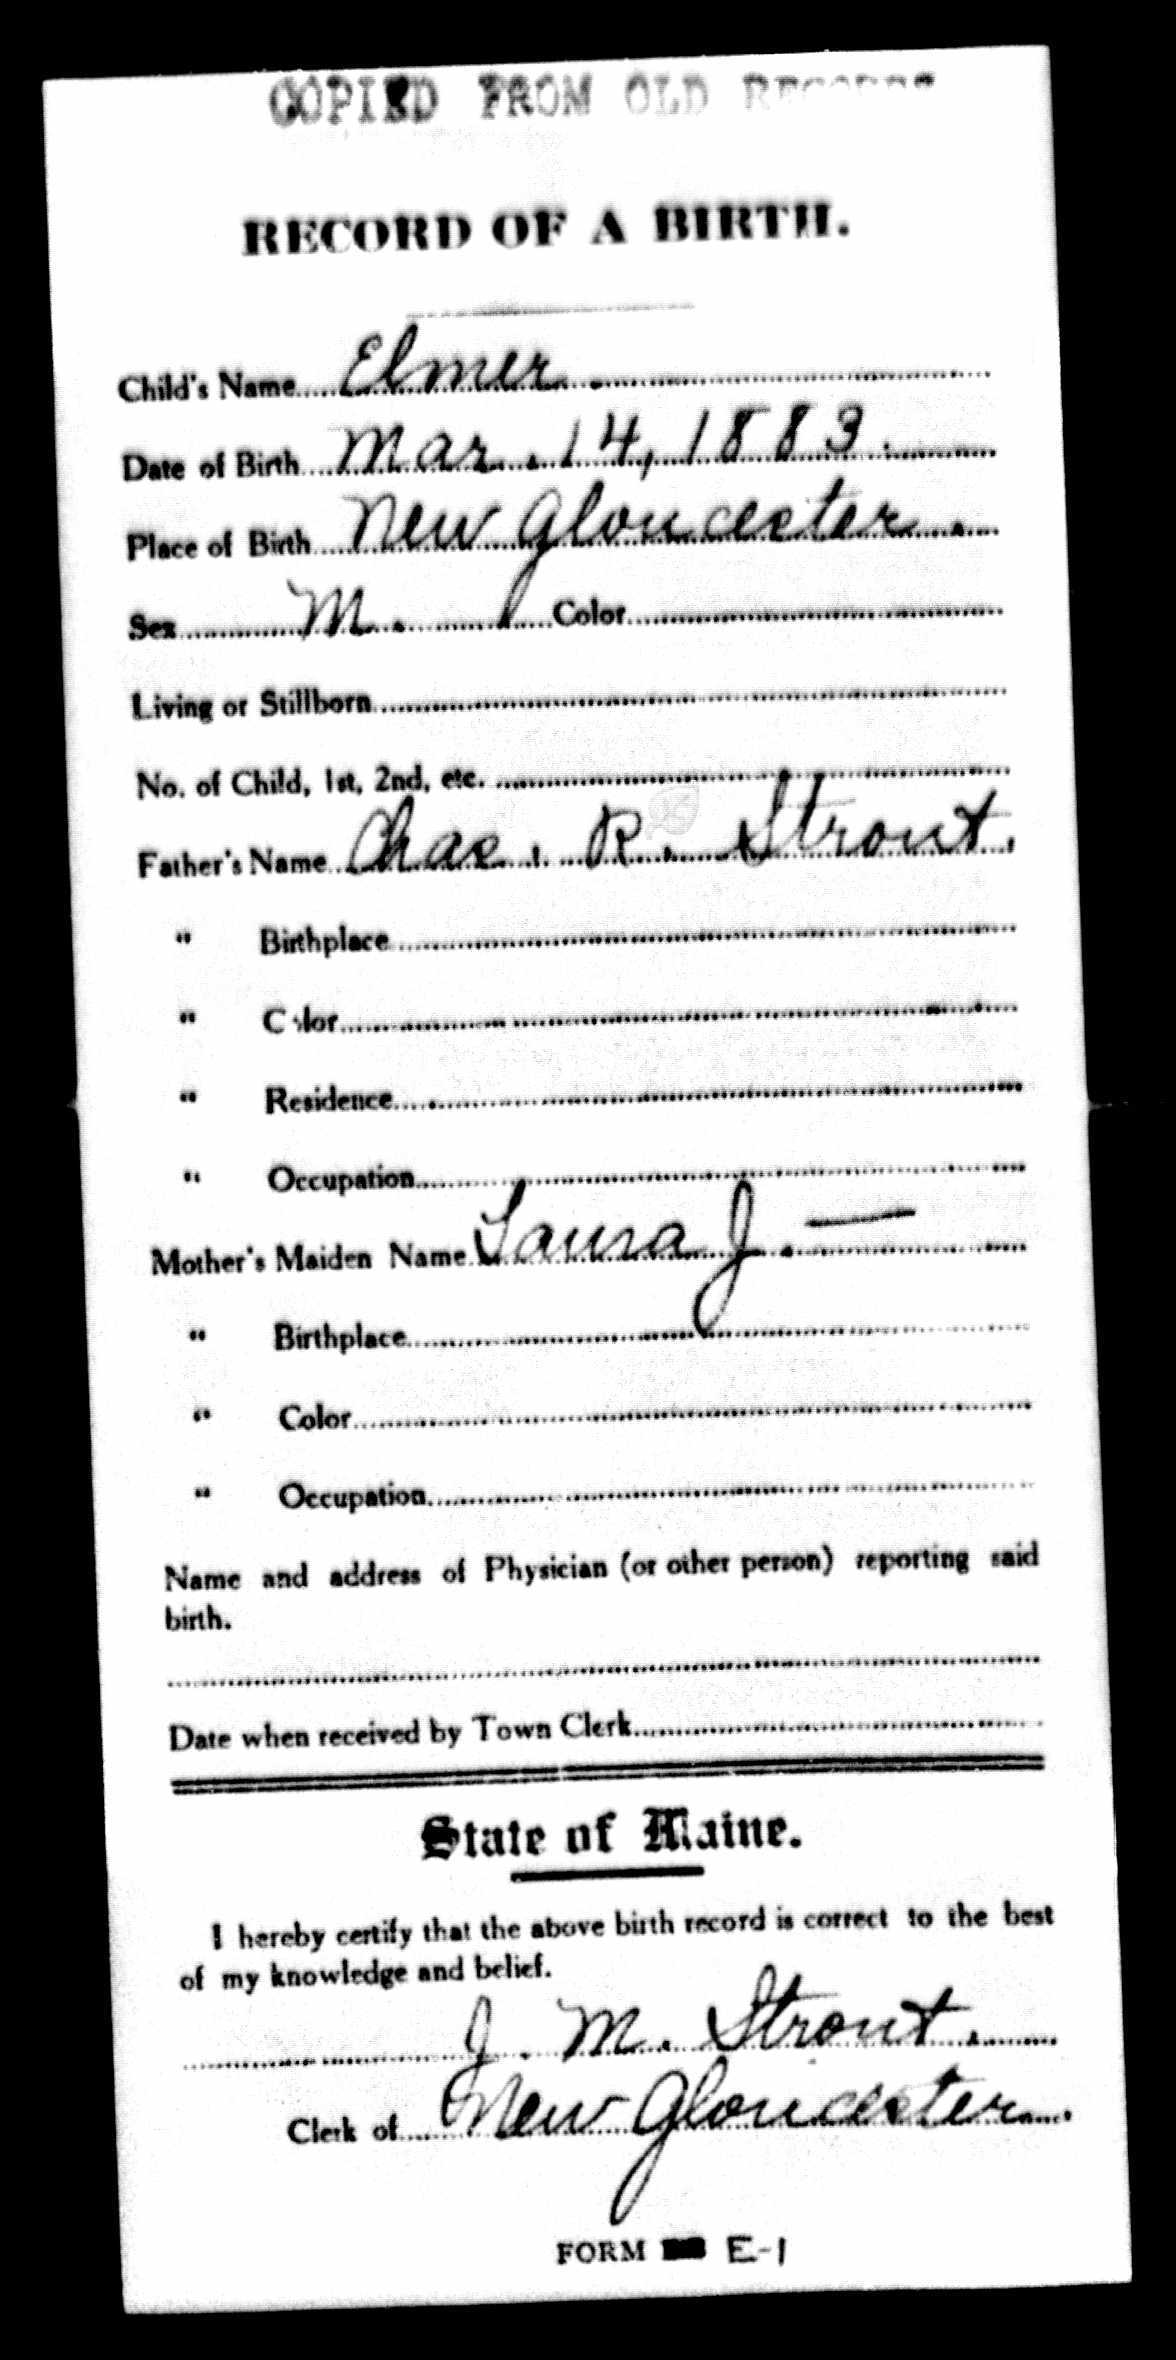 COPIED FROM OLD RECORDS
RECORD OF A BIRTH.
Child's Name Elmer.
Date of Birth Mar. 14, 1883.
Place of Birth New Gloucester.
Sex M. Color
Living or Stillborn
No. of Child, 1st, 2nd, etc.
Father's Name Chas. R. Strout.
" Birthplace
" Color
" Residence
" Occupation
Mother's Maiden Name Laura J. —
" Birthplace
" Color
" Occupation
Name and address of Physician (or other person) reporting said
birth.
Date when received by Town Clerk
State of Maine.
I hereby certify that the above birth record is correct to the best
of my knowledge and belief.
J. M. Strout.
Clerk of New Gloucester.
FORM E-1